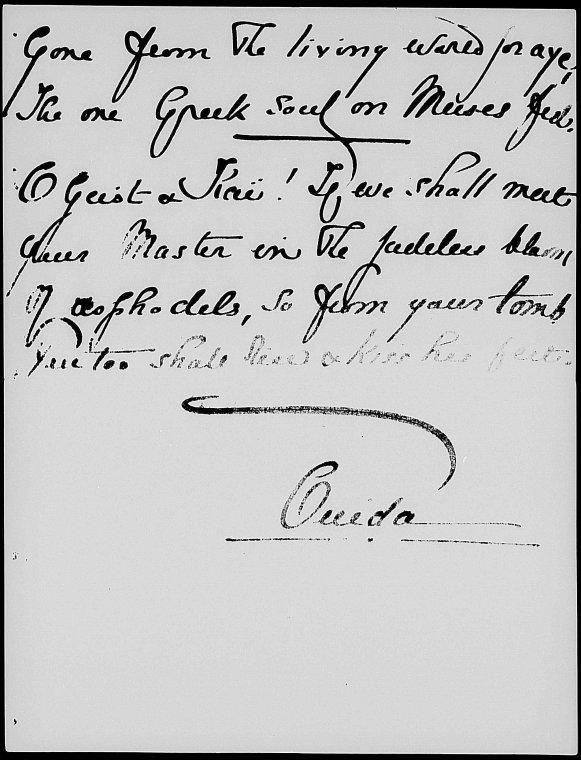 Gone from the living world for aye,
The one Greek soul on Muses fed.
O Geist & Kaï! If we shall meet
your Master in the fadeless bloom
Of asphodels, so from your tomb
You too shall rise & kiss his feet.
Ouida